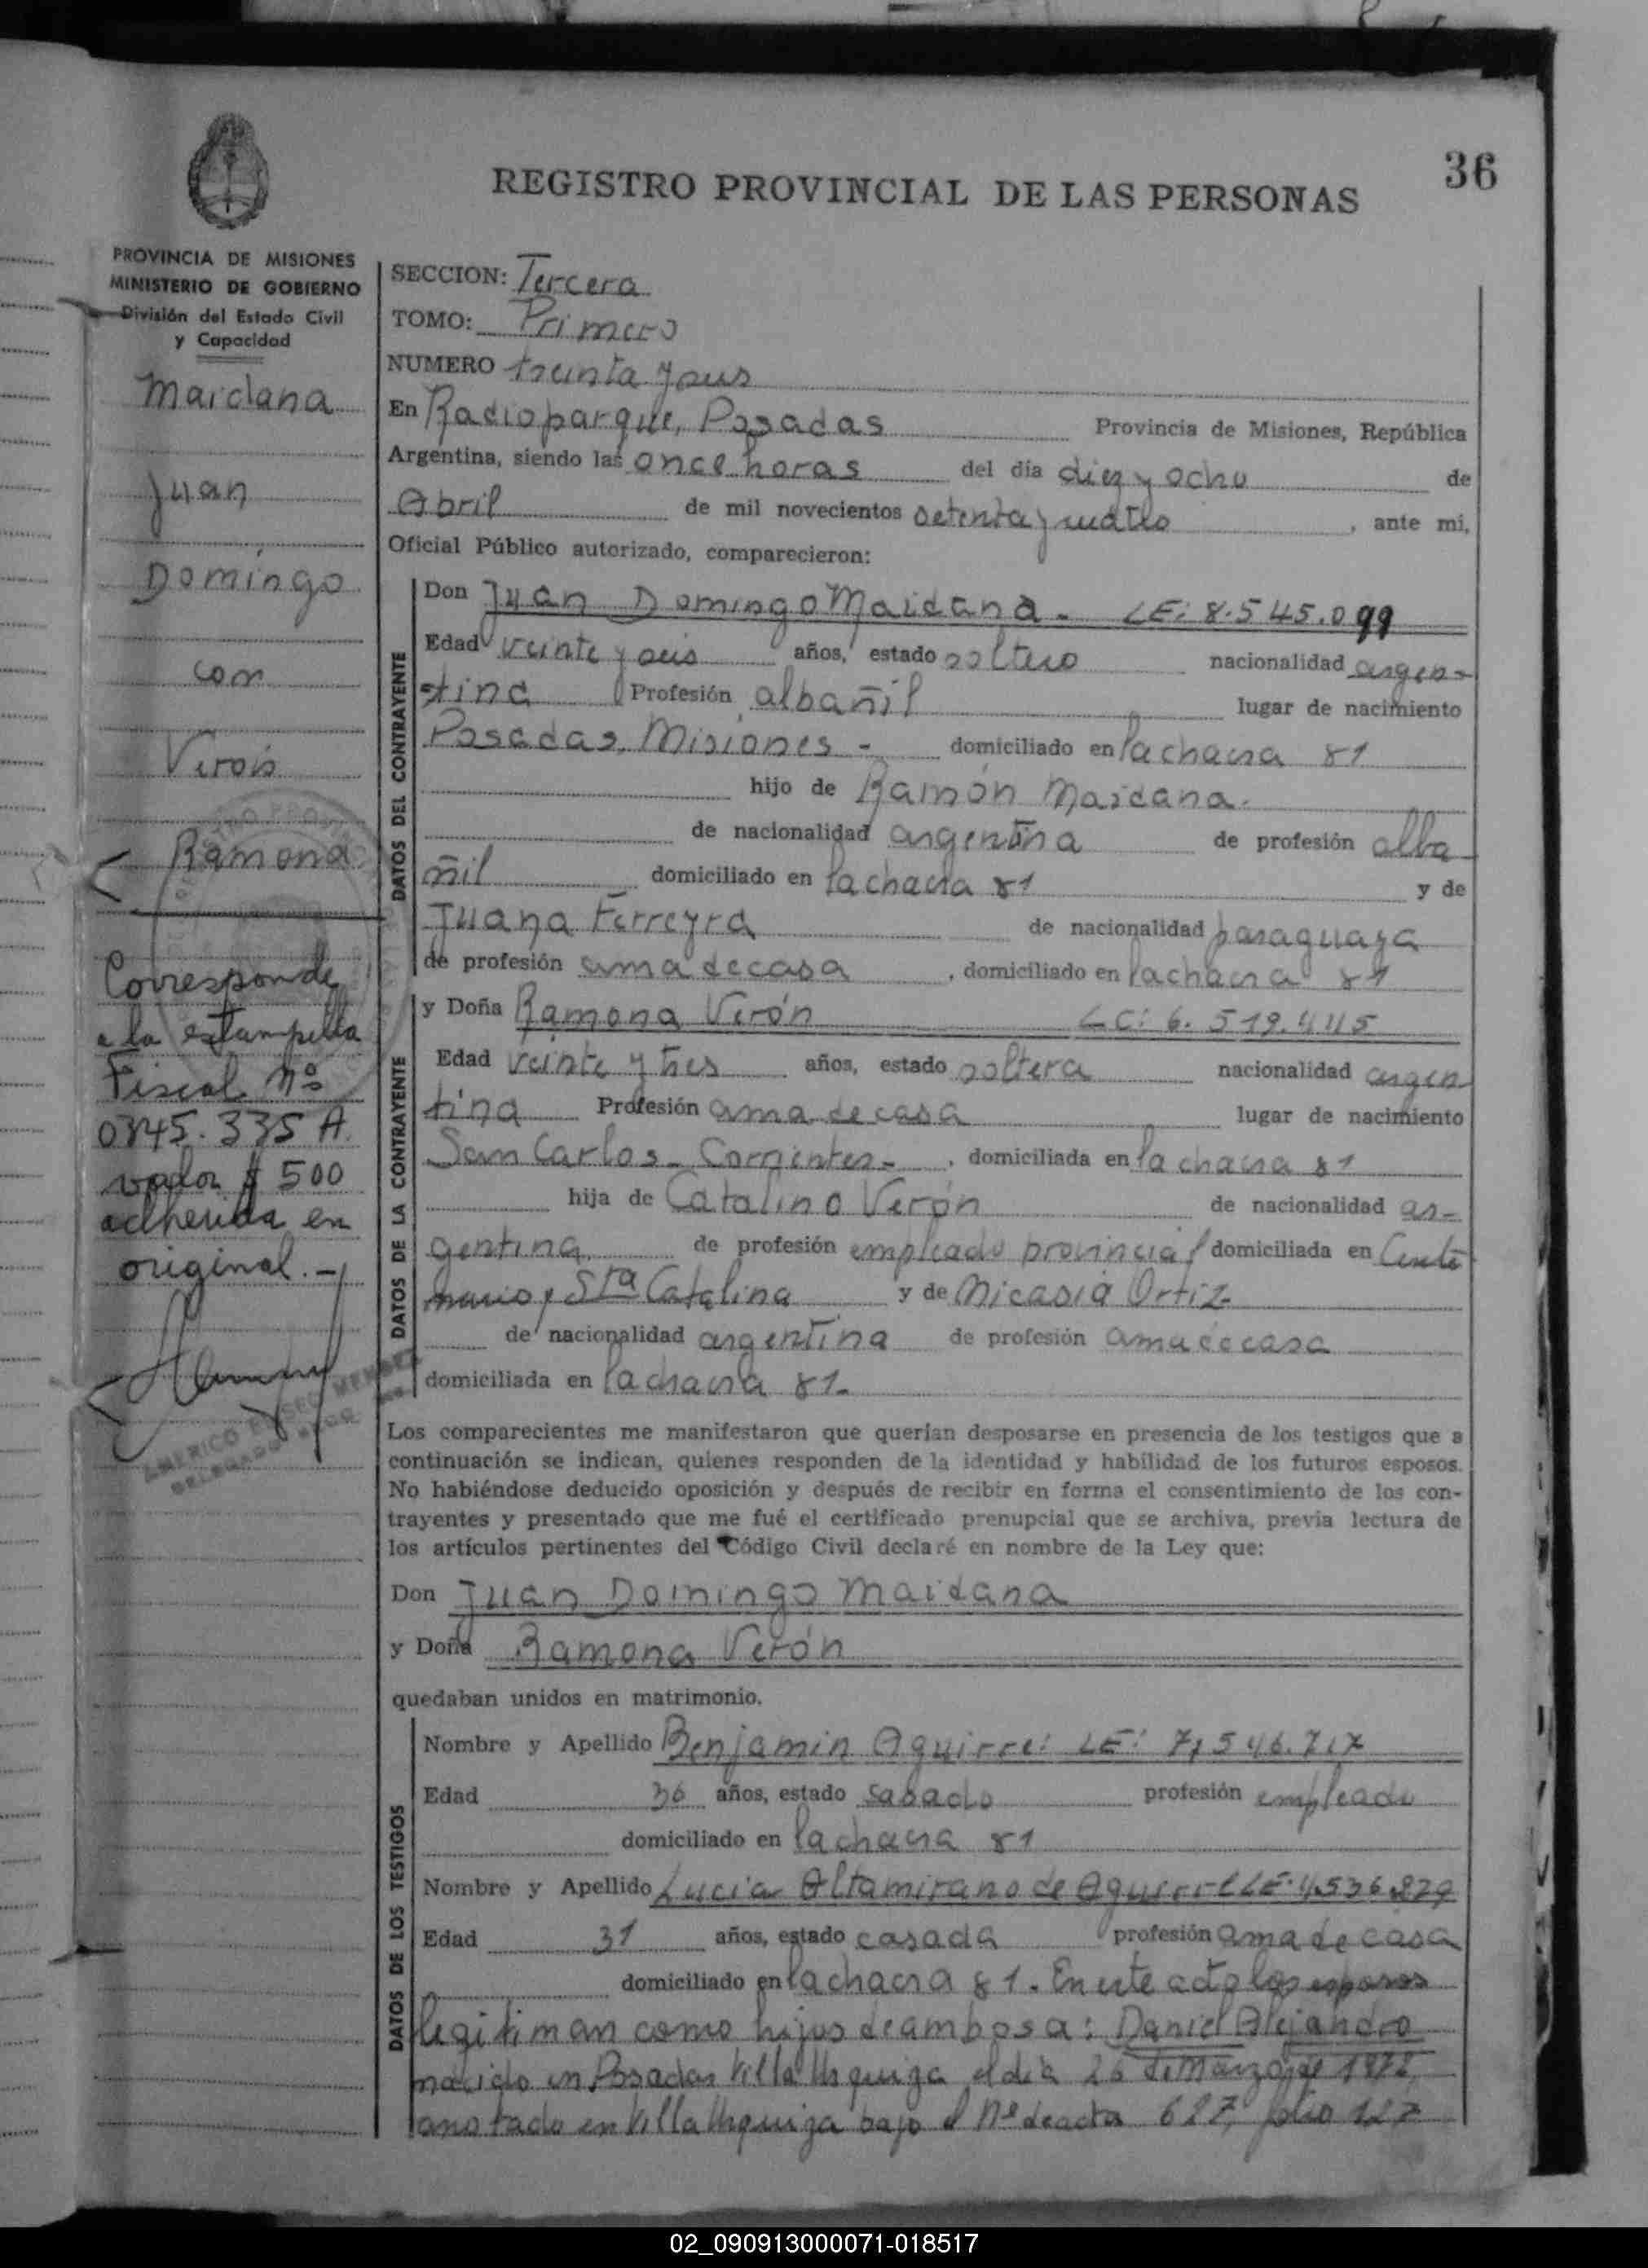 36
REGISTRO PROVINCIAL DE LAS PERSONAS
PROVINCIA DE MISIONES
MINISTERIO DE GOBIERNO
División del Estado Civil
y Capacidad
Maidana
Juan
Domingo
con
Verón
Ramona
Corresponde
a la estampilla
Fiscal nº
0345.335 A
valor $ 500
adherida en
original.-
SECCION: Tercera
TOMO: Primero
NUMERO treinta y seis
En Radioparque, Posadas Provincia de Misiones, República
Argentina, siendo las once horas del día diez y ocho de
Abril de mil novecientos setenta y cuatro, ante mi,
Oficial Público autorizado, comparecieron:
DATOS DEL CONTRAYENTE
Don Juan Domingo Maidana - LE: 8.545.099
Edad veinte y seis años, estado soltero nacionalidad argen-
tina Profesión albañil lugar de nacimiento
Posadas, Misiones - domiciliado en la chacra 81
hijo de Ramón Maidana.
de nacionalidad argentina de profesión alba
ñil domiciliado en la chacra 81 y de
Juana Ferreyra de nacionalidad paraguaya
de profesión ama de casa, domiciliado en la chacra 81
DATOS DE LA CONTRAYENTE
y Doña Ramona Verón LC: 6.519.445
Edad veinte y tres años, estado soltera nacionalidad argen
tina Profesión ama de casa lugar de nacimiento
San Carlos - Corrientes -, domiciliada en la chacra 81
hija de Catalino Verón de nacionalidad ar-
gentina de profesión empleado provincial domiciliada en Cente
nario y Sta Catalina y de Micasia Ortiz
de nacionalidad argentina de profesión ama de casa
domiciliada en la chacra 81-
Los comparecientes me manifestaron que querían desposarse en presencia de los testigos que a
continuación se indican, quienes responden de la identidad y habilidad de los futuros esposos.
No habiéndose deducido oposición y después de recibir en forma el consentimiento de los con-
trayentes y presentado que me fué el certificado prenupcial que se archiva, previa lectura de
los artículos pertinentes del Código Civil declaré en nombre de la Ley que:
Don Juan Domingo Maidana
y Doña Ramona Verón
quedaban unidos en matrimonio.
DATOS DE LOS TESTIGOS
Nombre y Apellido Benjamin Aguirre: LE: 7,546.717
Edad 36 años, estado profesión empleado
domiciliado en la chacra 81
Nombre y Apellido Lucia Altamirano de Aguirre LE: 4.536.829
Edad 31 años, estado casada profesión ama de casa
domiciliado en la chacra 81. En este acto los esposos
legitiman como hijos de ambos a: Daniel Alejandro
nacido en Posadas Villa Urquiza el día 26 de Marzo de 1972,
anotado en Villa Urquiza bajo el Nº de acta 627, folio 127
02_090913000071-018517